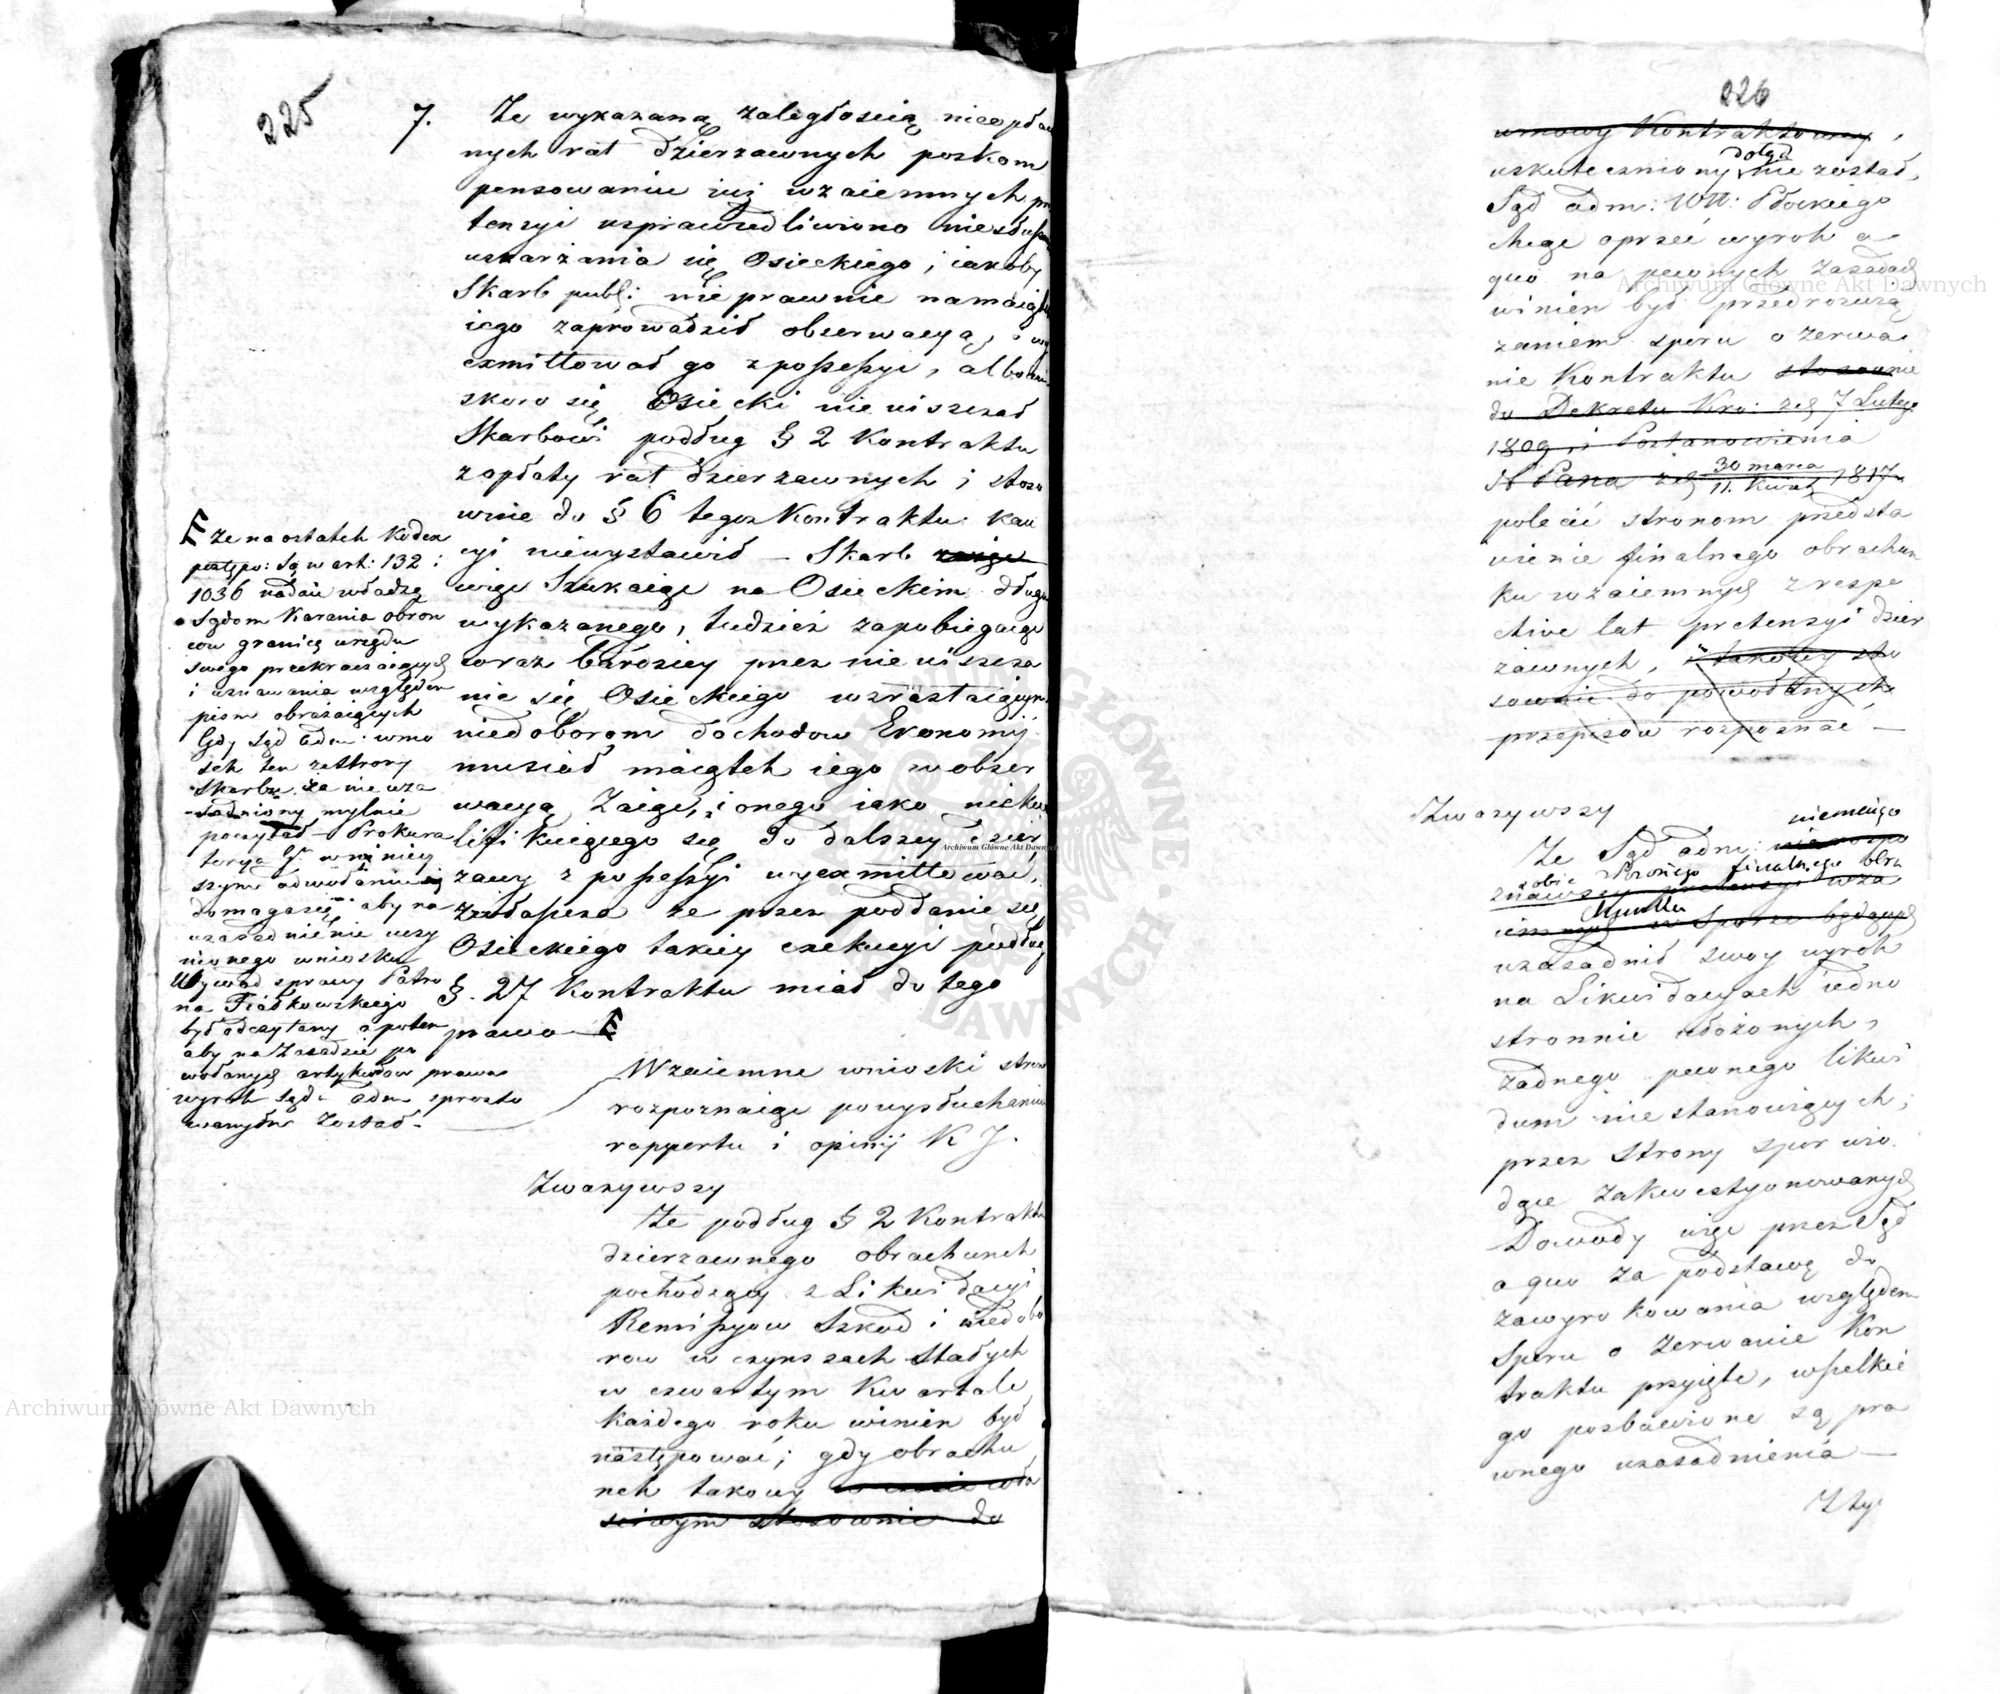 225
7. Ze wykazaną zaległością nieopłac
nych rat dzierzawnych poskom
pensowaniu iuż wzaiemnych pre
tensyi usprawiedliwiono niesłuszn
uskarżania się Osieckiego, iakoby
Skarb publ: nieprawnie na maiątku
iego zaprowadził obserwacyą, i wy
exmittował go z possessyi, albowiem
skoro się Osiecki nie uiszczał
Skarbowi podług § 2 Kontraktu
z opłaty rat dzierzawnych i stoso
wnie do § 6 tegoz Kontraktu kau
cyi niewystawił — Skarb
więc szukaiąc na Osieckim długu
wykazanego, tudzież zapobiegaiąc
coraz bardziey przez nieuiszcza
nie się Osieckiego wzrastaiącym
niedoborom dochodow Ekonomij
musiał maiątek iego w obser
wacyą zaiąć, i onego iako niekwa
lifikuiącego się do dalszey dzier
zawy z possessyi wyexmittować,
zwłaszcza ze przez poddanie się
Osieckiego takiey exekucyi podług
§. 27 Kontraktu miał do tego
prawo —
ze na ostatek Kodex
postępo: Są w art: 132 i
1036 nadaie władzę
Sądom Karania obron
cow granicę urzędu
swego przekraczaiących
i uznawania względem
pism obrażaiących
Gdy Sąd adm: wnio
sek ten ze strony
Skarbu za nieuza
sadniony mylnie
poczytał — Prokura
torya Jlna w niniey
szym odwołaniu
domaga się aby na
uzasadnienie uczy
nionego wniosku
Wywod sprawy Patro
na Fiałkowskiego
był odczytany a potem
aby na zasadzie po
wołanych artykułow prawa
wyrok Sądu adm sprosto
wanym został —
Wzaiemne wnioski stron
rozpoznaiąc po wysłuchaniu
rapportu i opinij K J.
Zwazywszy
Ze podług § 2 Kontraktu
dzierzawnego obrachunek
pochodzący z Likwidacyi
Remissyow szkod i niedobo
row w czynszach stałych
w czwartym Kwartale
każdego roku winien był
następować; gdy obrachu
nek takowy w czasie wła
sciwym stosownie do
226
umowy Kontraktowey,
uskuteczniony dotąd nie został,
Sąd adm: Wtt: Płockiego
chcąc oprzeć wyrok a
quo na pewnych zasadach
winien był przed rozwią
zaniem sporu o zerwa
nie Kontraktu stosownie
do Dekretu Kro: z d 7 Lutego
1809 i Postanowienia
N Pana z d 30 marca / 11. Kwiet 1817
polecić stronom przedsta
wienie finalnego obrachun
ku wzaiemnych z respe
ctive lat pretensyi dzier
żawnych, i takowy sto
sownie do powołanych
przepisow rozpoznać —
Zwazywszy
niemaiąc
Ze Sąd adm: nie rozpo
sobie złożonego finalnego obra
znawszy pretensyi wza
chunku
iemnych w sporze będących
uzasadnił swoy wyrok
na Likwidacyach iedno
stronnie ułożonych,
żadnego pewnego likwi
dum nie stanowiących,
przez strony spor wio
dące zakwestyonowanych
Dowody więc przez Sąd
a quo za podstawę do
zawyrokowania względem
sporu o zerwanie Kon
traktu przyięte, wszelkie
go pozbawione są pra
wnego uzasadnienia —
Z tych
Archiwum Główne Akt Dawnych
Archiwum Główne Akt Dawnych
Archiwum Główne Akt Dawnych